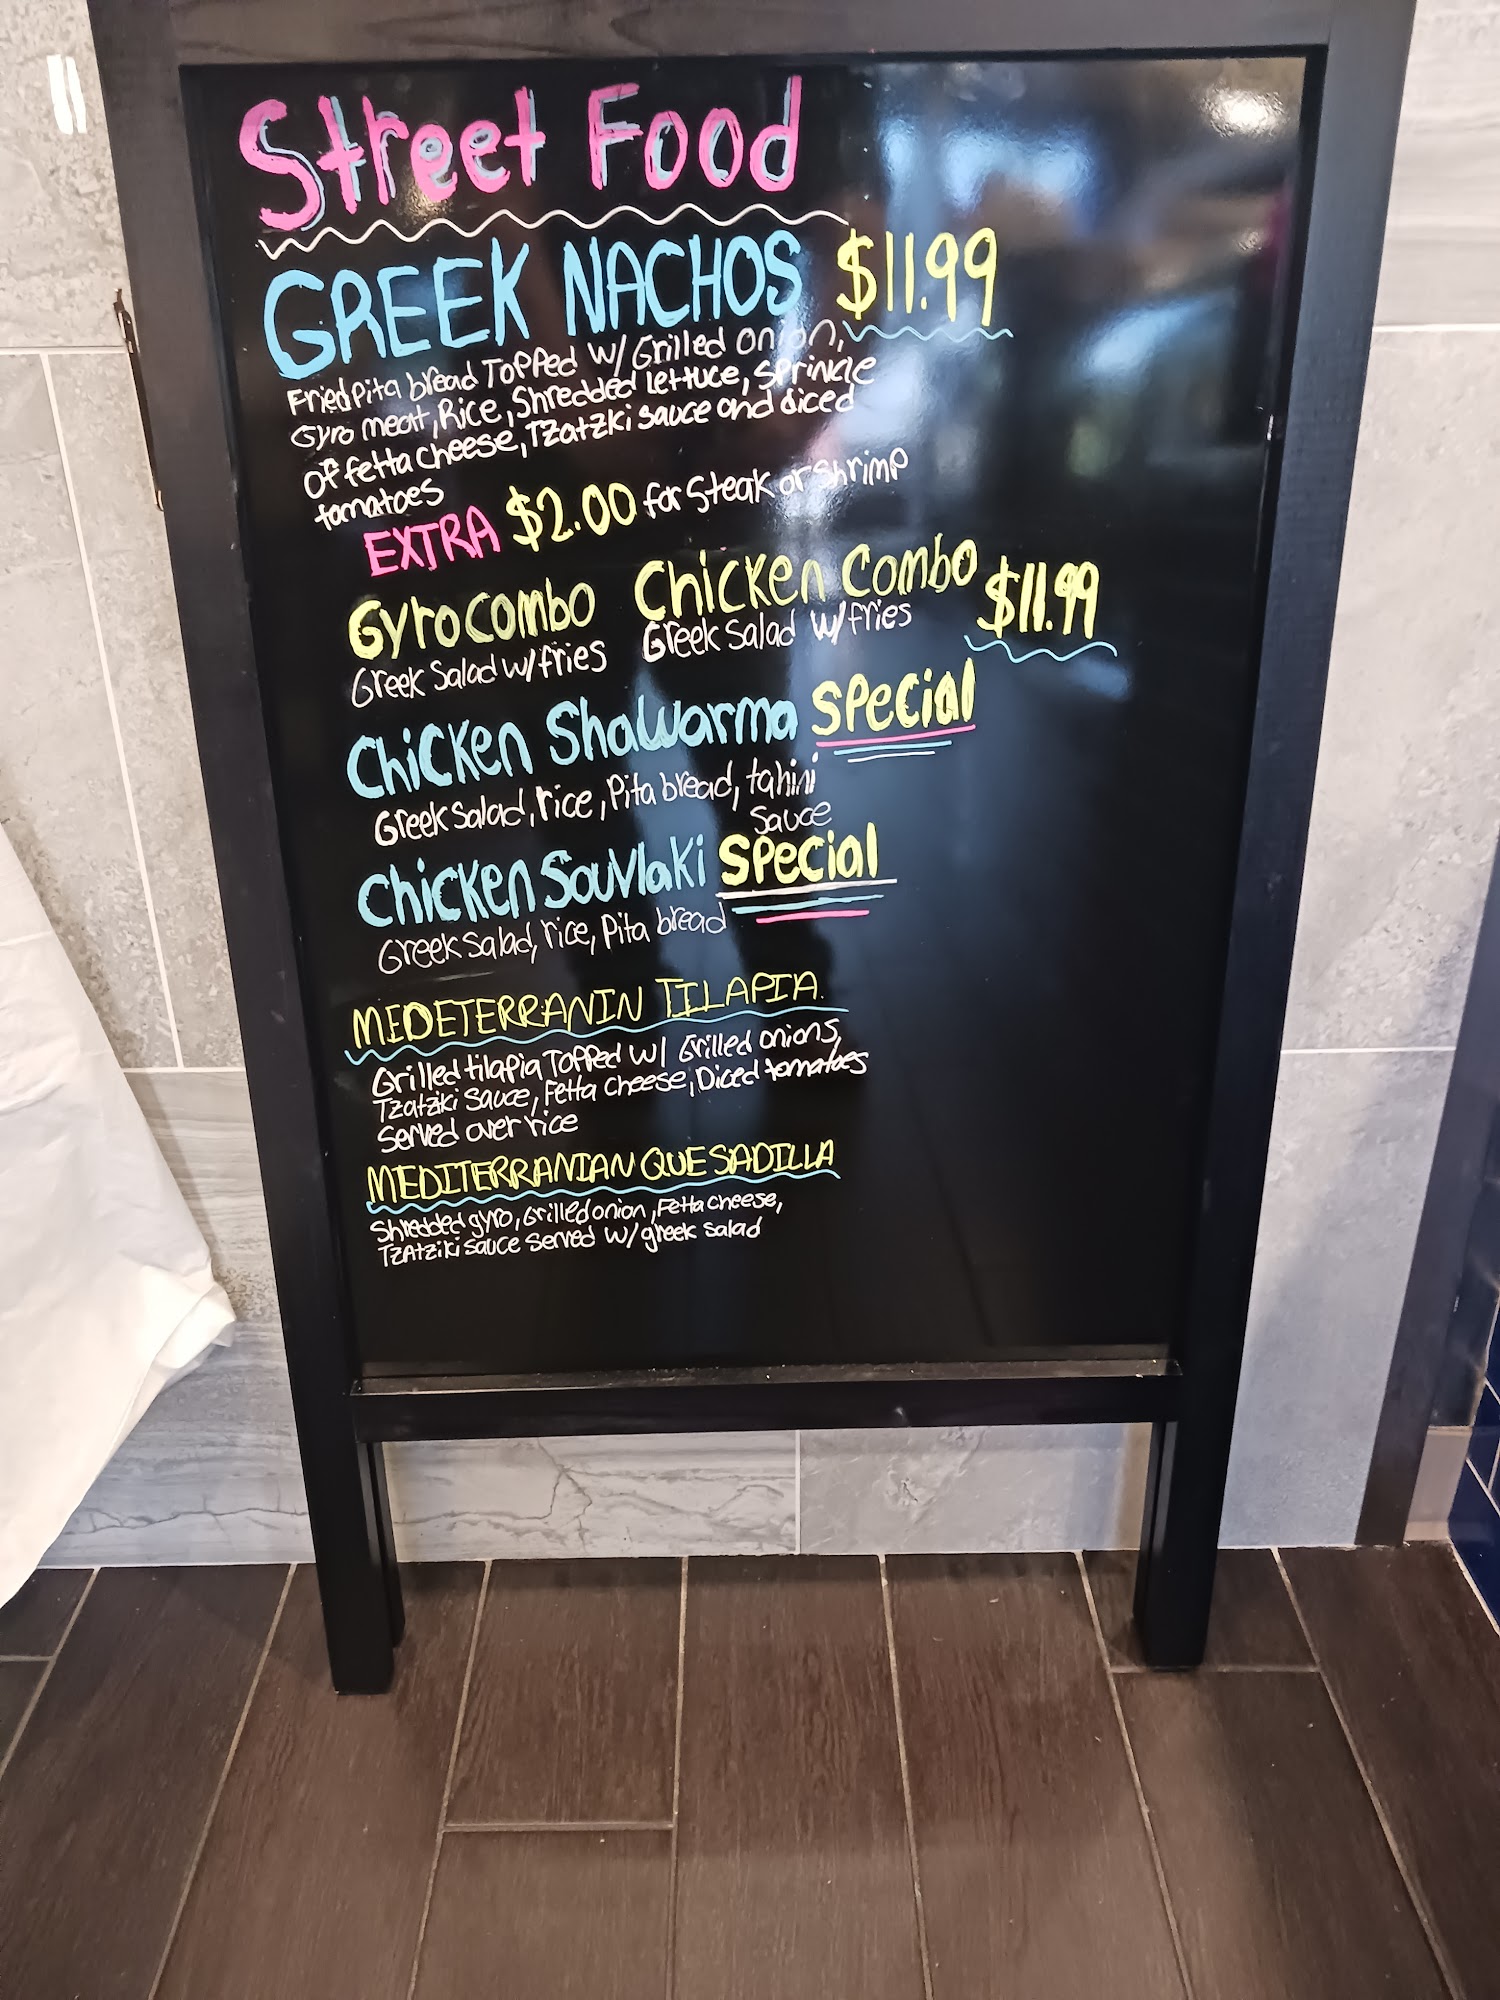 Street Food
GREEK NACHOS $11.99
Fried Pita bread Topped w/ Grilled onion,
Gyro meat, Rice, Shredded lettuce, sprinkle
of fetta cheese, Tzatzki sauce and diced
tomatoes
EXTRA $2.00 for Steak or shrimp
Gyro combo Chicken Combo $11.99
Greek Salad w/fries Greek Salad w/fries
Chicken Shawarma Special
Greek Salad, rice, Pita bread, tahini
Sauce
Chicken Souvlaki Special
Greek Salad, rice, Pita bread
MEDETERRANIN TILAPIA.
Grilled tilapia Topped w/ Grilled onions,
Tzatziki Sauce, Fetta cheese, Diced tomatoes
Served over rice
MEDITERRANIAN QUESADILLA
Shredded gyro, Grilled onion, Fetta cheese,
Tzatziki sauce served w/ greek salad